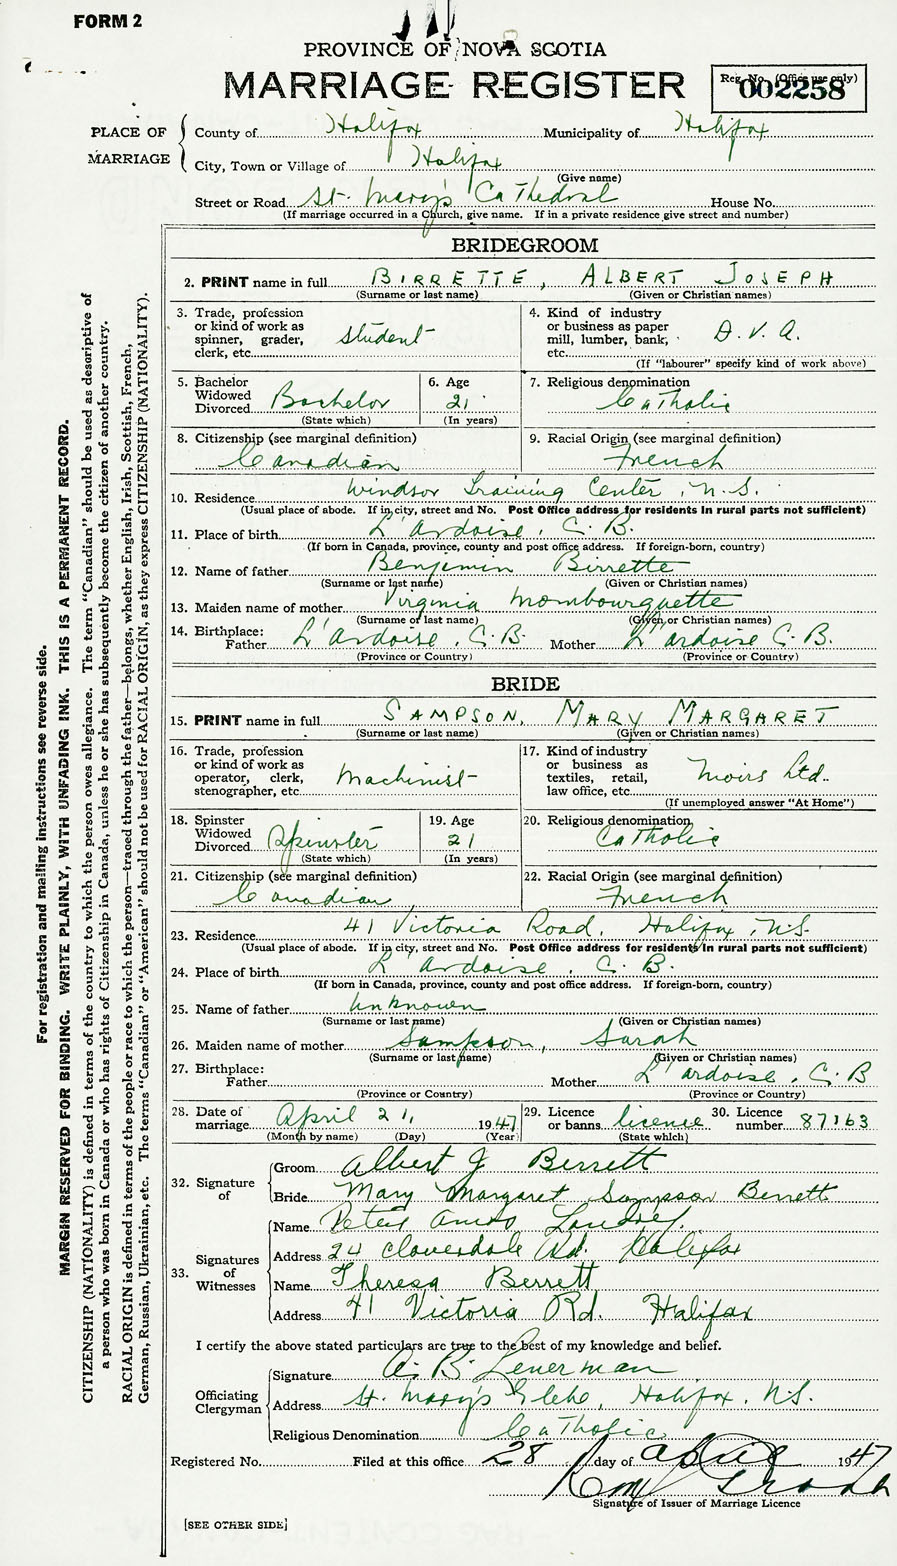 FORM 2
PROVINCE OF NOVA SCOTIA
MARRIAGE REGISTER
Reg. No. (Office use only)
002258
PLACE OF MARRIAGE
County of Halifax Municipality of Halifax
City, Town or Village of Halifax
(Give name)
Street or Road St. Mary's Cathedral House No.
(If marriage occurred in a Church, give name. If in a private residence give street and number)
BRIDEGROOM
2. PRINT name in full BIRRETTE, ALBERT JOSEPH
(Surname or last name) (Given or Christian names)
3. Trade, profession or kind of work as spinner, grader, clerk, etc. Student
4. Kind of industry or business as paper mill, lumber, bank, etc. D.V.A.
(If "labourer" specify kind of work above)
5. Bachelor Widowed Divorced Bachelor
(State which)
6. Age 21
(In years)
7. Religious denomination Catholic
8. Citizenship (see marginal definition) Canadian
9. Racial Origin (see marginal definition) French
10. Residence Windsor Training Center, N.S.
(Usual place of abode. If in city, street and No. Post Office address for residents in rural parts not sufficient)
11. Place of birth L'Ardoise, C.B.
(If born in Canada, province, county and post office address. If foreign-born, country)
12. Name of father Benjamin Birrette
(Surname or last name) (Given or Christian names)
13. Maiden name of mother Virginia Mombourquette
(Surname or last name) (Given or Christian names)
14. Birthplace: Father L'Ardoise, C.B. Mother L'ardoise C.B.
(Province or Country) (Province or Country)
BRIDE
15. PRINT name in full SAMPSON, MARY MARGARET
(Surname or last name) (Given or Christian names)
16. Trade, profession or kind of work as operator, clerk, stenographer, etc Machinist
17. Kind of industry or business as textiles, retail, law office, etc. Moirs Ltd.
(If unemployed answer "At Home")
18. Spinster Widowed Divorced Spinster
(State which)
19. Age 21
(In years)
20. Religious denomination Catholic
21. Citizenship (see marginal definition) Canadian
22. Racial Origin (see marginal definition) French
23. Residence 41 Victoria Road, Halifax, N.S.
(Usual place of abode. If in city, street and No. Post Office address for residents in rural parts not sufficient)
24. Place of birth L'Ardoise, C.B.
(If born in Canada, province, county and post office address. If foreign-born, country)
25. Name of father Unknown
(Surname or last name) (Given or Christian names)
26. Maiden name of mother Sampson, Sarah
(Surname or last name) (Given or Christian names)
27. Birthplace: Father Mother L'ardoise, C.B
(Province or Country) (Province or Country)
28. Date of marriage April 21, 1947
(Month by name) (Day) (Year)
29. Licence or banns licence
(State which)
30. Licence number 87163
32. Signature of
Groom Albert J Berrett
Bride Mary Margaret Sampson Berrett
33. Signatures of Witnesses
Name Landry
Address 24 Cloverdale Rd. Halifax
Name Theresa Berrett
Address 41 Victoria Rd. Halifax
I certify the above stated particulars are true to the best of my knowledge and belief.
Officiating Clergyman
Signature A. B.
Address St. Mary's Glebe, Halifax, N.S.
Religious Denomination Catholic
Registered No. Filed at this office 28 day of April 1947
Signature of Issuer of Marriage Licence
[SEE OTHER SIDE]
For registration and mailing instructions see reverse side.
MARGIN RESERVED FOR BINDING. WRITE PLAINLY, WITH UNFADING INK. THIS IS A PERMANENT RECORD.
CITIZENSHIP (NATIONALITY) is defined in terms of the country to which the person owes allegiance. The term "Canadian" should be used as descriptive of
a person who was born in Canada or who has rights of Citizenship in Canada, unless he or she has subsequently become the citizen of another country.
RACIAL ORIGIN is defined in terms of the people or race to which the person—traced through the father—belongs, whether English, Irish, Scottish, French,
German, Russian, Ukrainian, etc. The terms "Canadian" or "American" should not be used for RACIAL ORIGIN, as they express CITIZENSHIP (NATIONALITY).